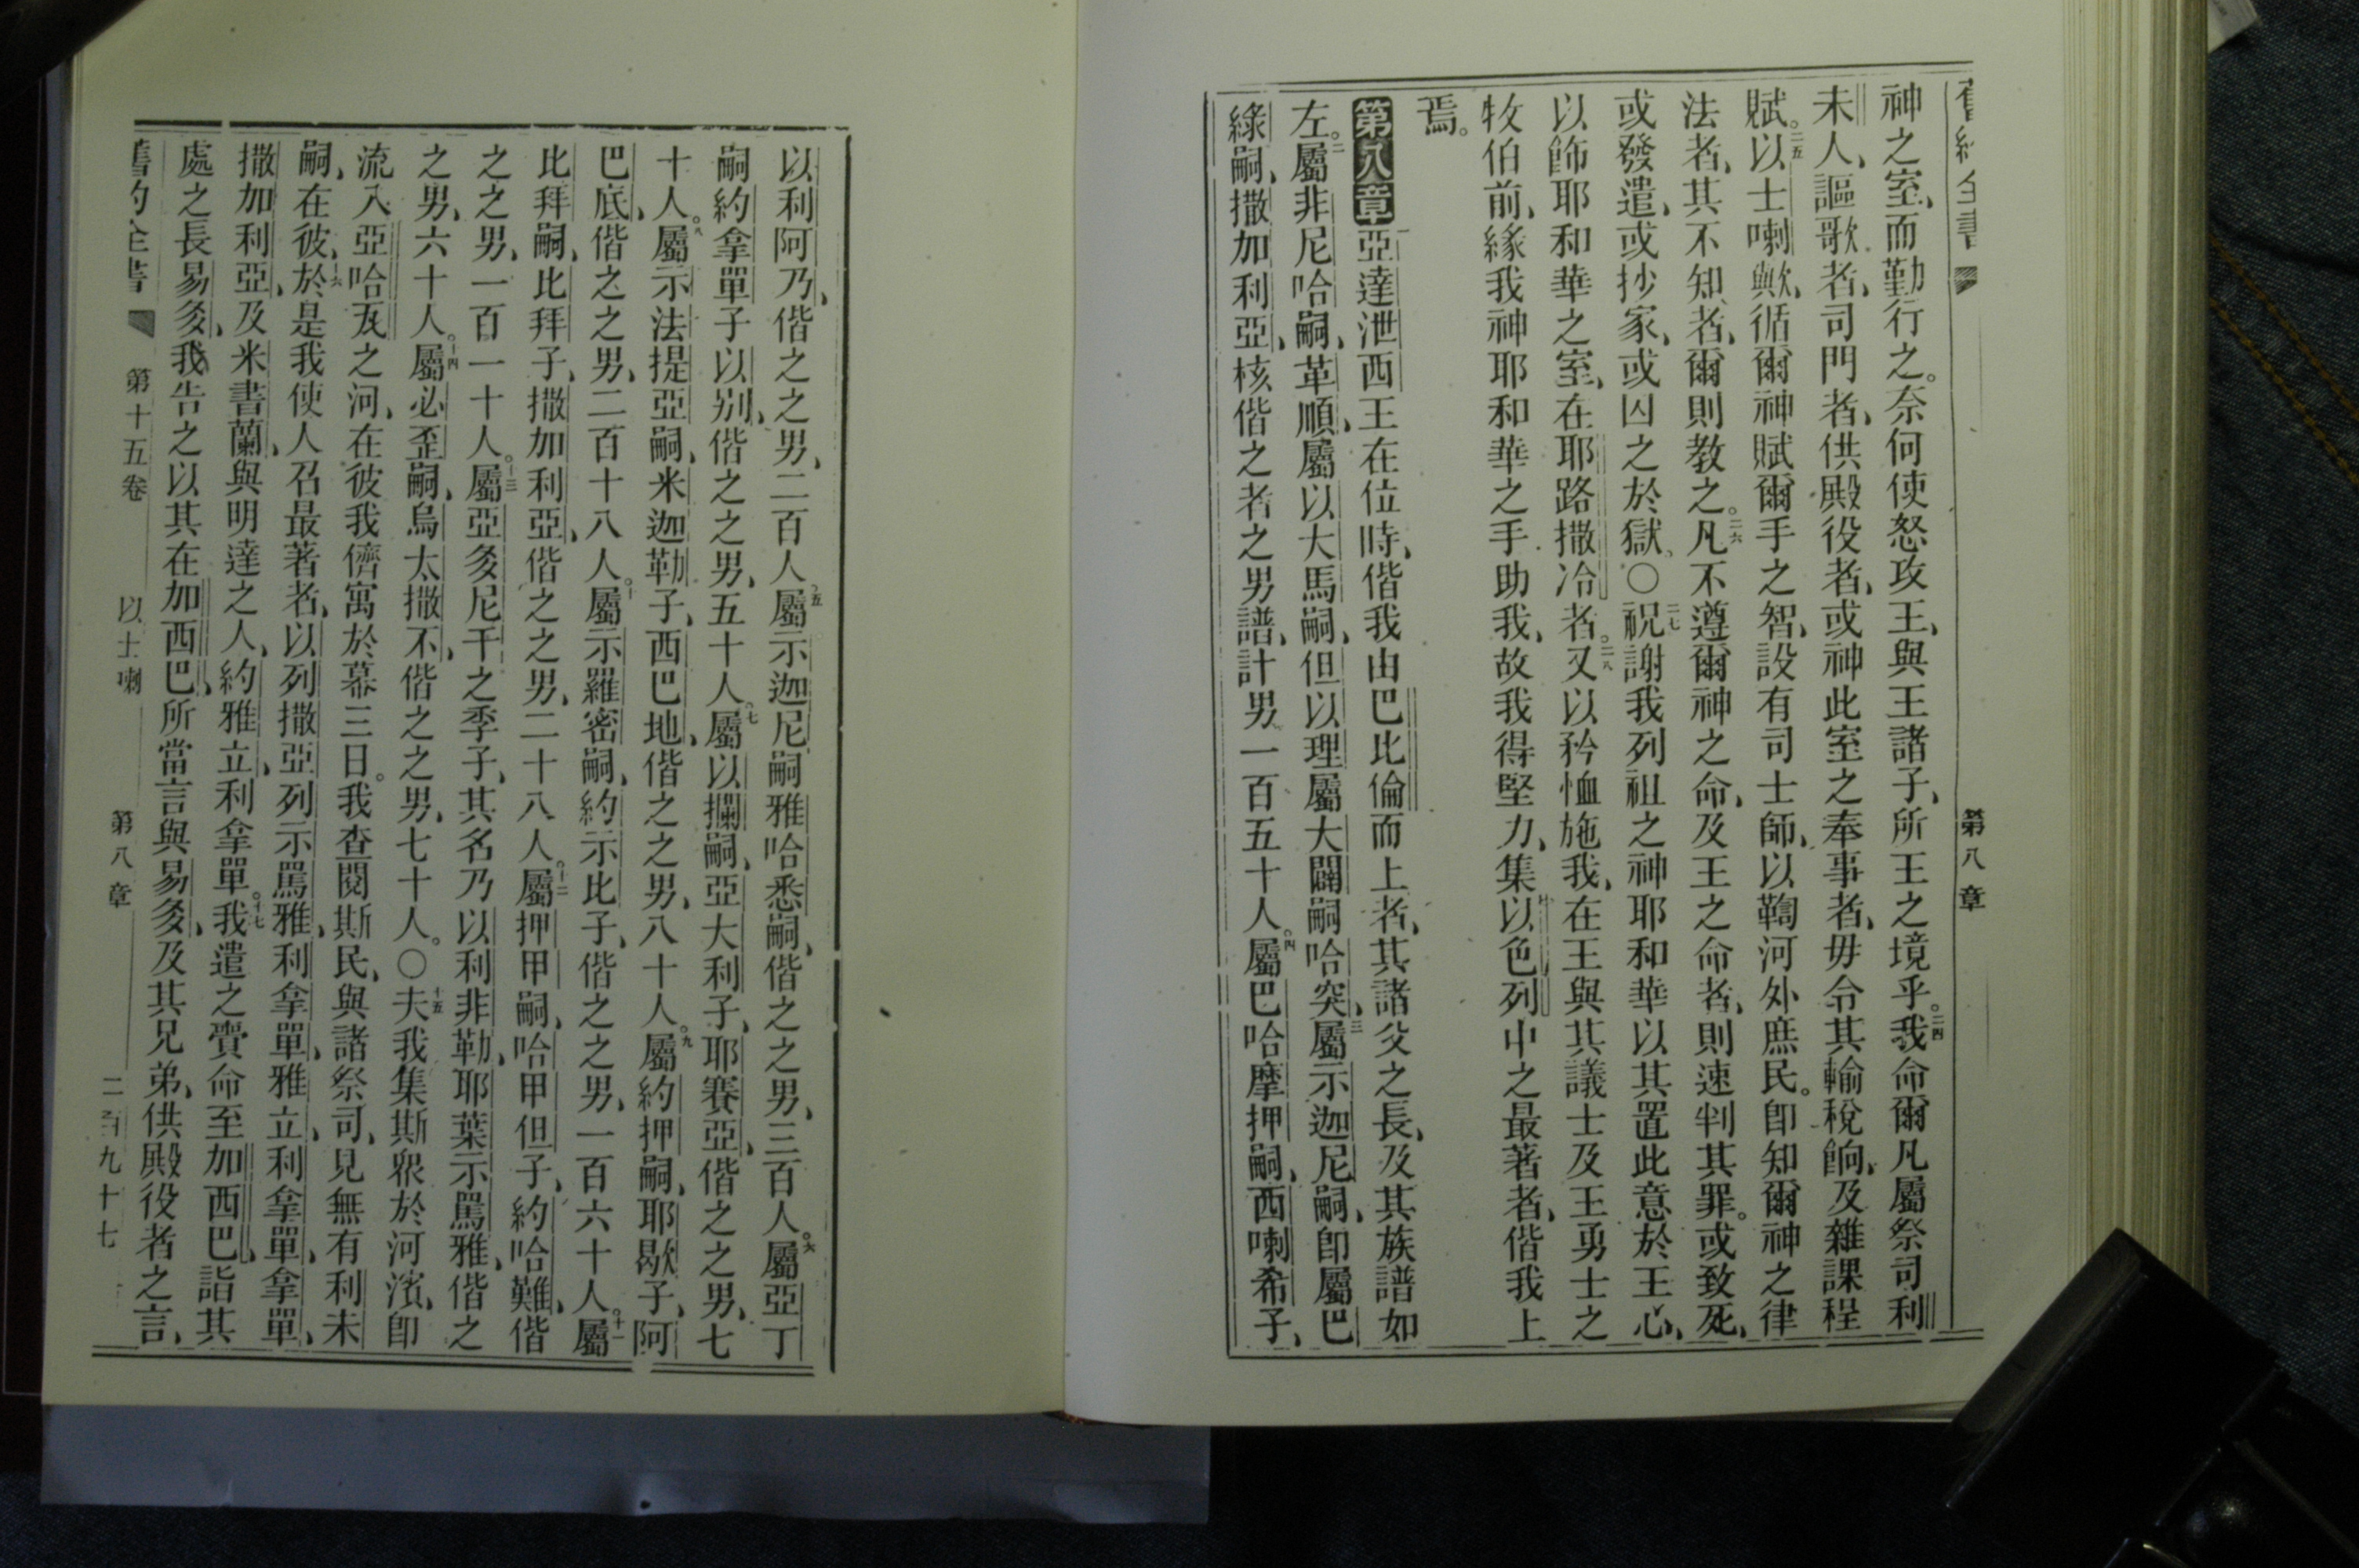 舊約全書 第八章
神之室、而勤行之。奈何使怒攻王、與王諸子、所王之境乎。二四我命爾凡屬祭司利
未人、謳歌者、司門者、供殿役者、或神此室之奉事者、毋令其輸稅餉、及雜課程
賦。二五以士喇歟、循爾神賦爾手之智、設有司士師、以鞫河外庶民。卽知爾神之律
法者、其不知者、爾則教之。二六凡不遵爾神之命、及王之命者、則速判其罪。或致死、
或發遣、或抄家、或囚之於獄。○二七祝謝我列祖之神耶和華以其置此意於王心、
以飾耶和華之室、在耶路撒冷者。二八又以矜恤施我、在王與其議士及王勇士之
牧伯前、緣我神耶和華之手助我、故我得堅力、集以色列中之最著者、偕我上
焉。
第八章一亞達泄西王在位時、偕我由巴比倫而上者、其諸父之長、及其族譜如
左。二屬非尼哈嗣、革順、屬以大馬嗣、但以理屬大闢嗣哈突、三屬示迦尼嗣、卽屬巴
綠嗣、撒加利亞、核偕之者之男譜、計男一百五十人。四屬巴哈摩押嗣、西喇希子、
以利阿乃、偕之之男、二百人、五屬示迦尼嗣雅哈悉嗣、偕之之男、三百人。六屬亞丁
嗣約拿單子以別、偕之之男、五十人。七屬以攔嗣、亞大利子、耶賽亞、偕之之男、七
十人。八屬示法提亞嗣、米迦勒子、西巴地、偕之之男、八十人。九屬約押嗣、耶歇子、阿
巴底、偕之之男、二百十八人。十屬示羅密嗣、約示比子、偕之之男、一百六十人。十一屬
比拜嗣、比拜子、撒加利亞、偕之之男、二十八人。十二屬押甲嗣、哈甲但子、約哈難、偕
之之男、一百一十人。十三屬亞多尼干之季子、其名乃以利非勒、耶葉示罵雅、偕之
之男、六十人。十四屬必歪嗣、烏太撒不、偕之之男、七十人。○十五夫我集斯眾於河濱、卽
流入亞哈瓦之河、在彼我儕寓於幕三日。我查閱斯民、與諸祭司、見無有利未
嗣、在彼、十六於是我使人召最著者、以列撒亞列示罵雅、利拿單、雅立、利拿單、拿單、
撒加利亞、及米書蘭、與明達之人、約雅立、利拿單。十七我遣之賷命至加西巴、詣其
處之長易多、我告之以其在加西巴、所當言與易多、及其兄弟、供殿役者之言、
舊約全書 第十五卷 以士喇 第八章 二百九十七